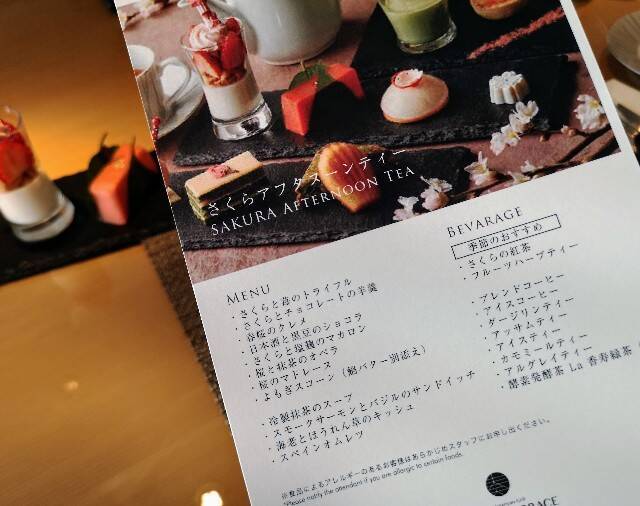 さくらアフタヌーンティー
SAKURA AFTERNOON TEA
MENU
・さくらと苺のトライフル
・さくらとチョコレートの羊羹
・春桜のクレメ
・日本酒と黒豆のショコラ
・さくらと塩麹のマカロン
・桜と抹茶のオペラ
・桜のマドレーヌ
・よもぎスコーン（餡バター別添え）
・冷製抹茶のスープ
・スモークサーモンとバジルのサンドイッチ
・海老とほうれん草のキッシュ
・スペインオムレツ
BEVARAGE
季節のおすすめ
・さくらの紅茶
・フルーツハーブティー
・ブレンドコーヒー
・アイスコーヒー
・ダージリンティー
・アッサムティー
・アイスティー
・カモミールティー
・アルグレイティー
・酵素発酵茶 La 香寿緑茶
※食品によるアレルギーのあるお客様はあらかじめスタッフにお申し出ください。
*Please notify the attendant if you are allergic to certain foods.